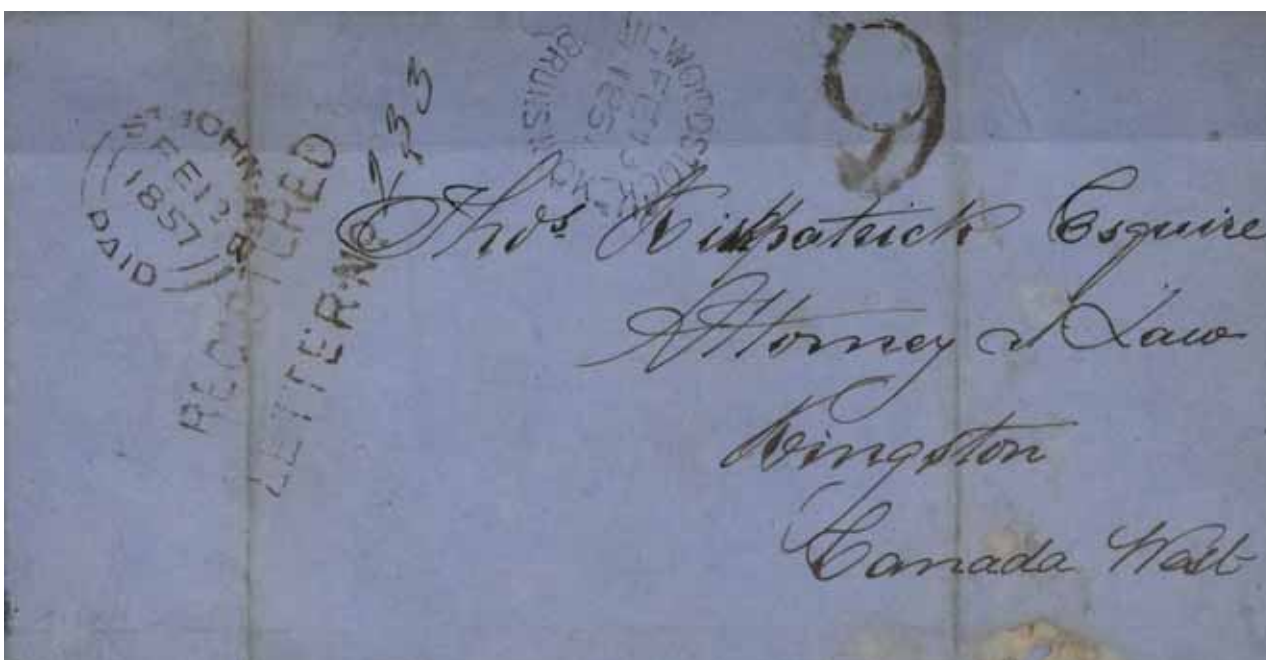 ST JOHN N.B.
FE 12
1857
PAID
REGISTERED
LETTER No
WOODSTOCK
9
Thos Kirkpatrick Esquire
Attorney at Law
Kingston
Canada West